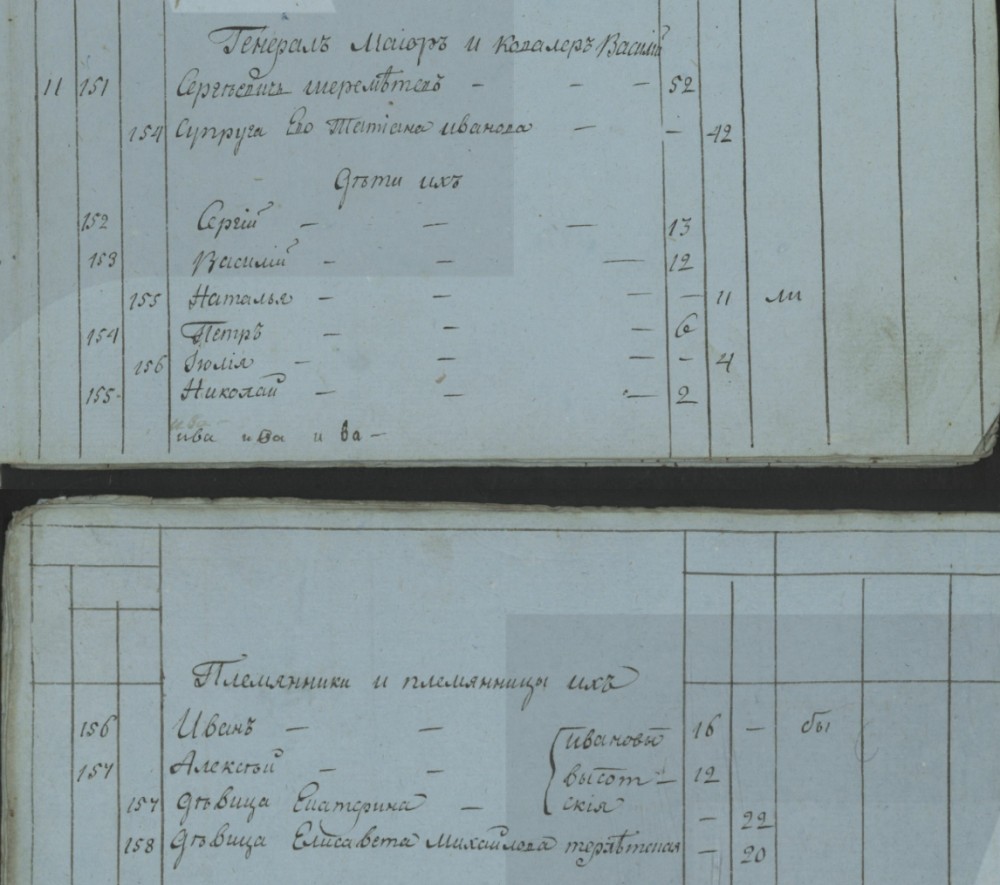 Генералъ Маіоръ и Кавалеръ Василій
11 151 Сергѣевичь шереметевъ - - - 52
154 Супруга Его Татіана иванова - - 42
Дѣти ихъ
152 Сергій - - - 13
153 Василій - - - 12
155 Наталья - - - - 11 ли
154 Петръ - - - 6
156 Іюлія - - - - 4
155. Николай - - - 2
ива и ва и ва -
Племянники и племянницы ихъ
156 Иванъ - - ивановы 16 - бы
157 Алексѣй - - высот- 12
157 Дѣвица Екатерина - скія - 22
158 Дѣвица Елисавета Михайлова - 20